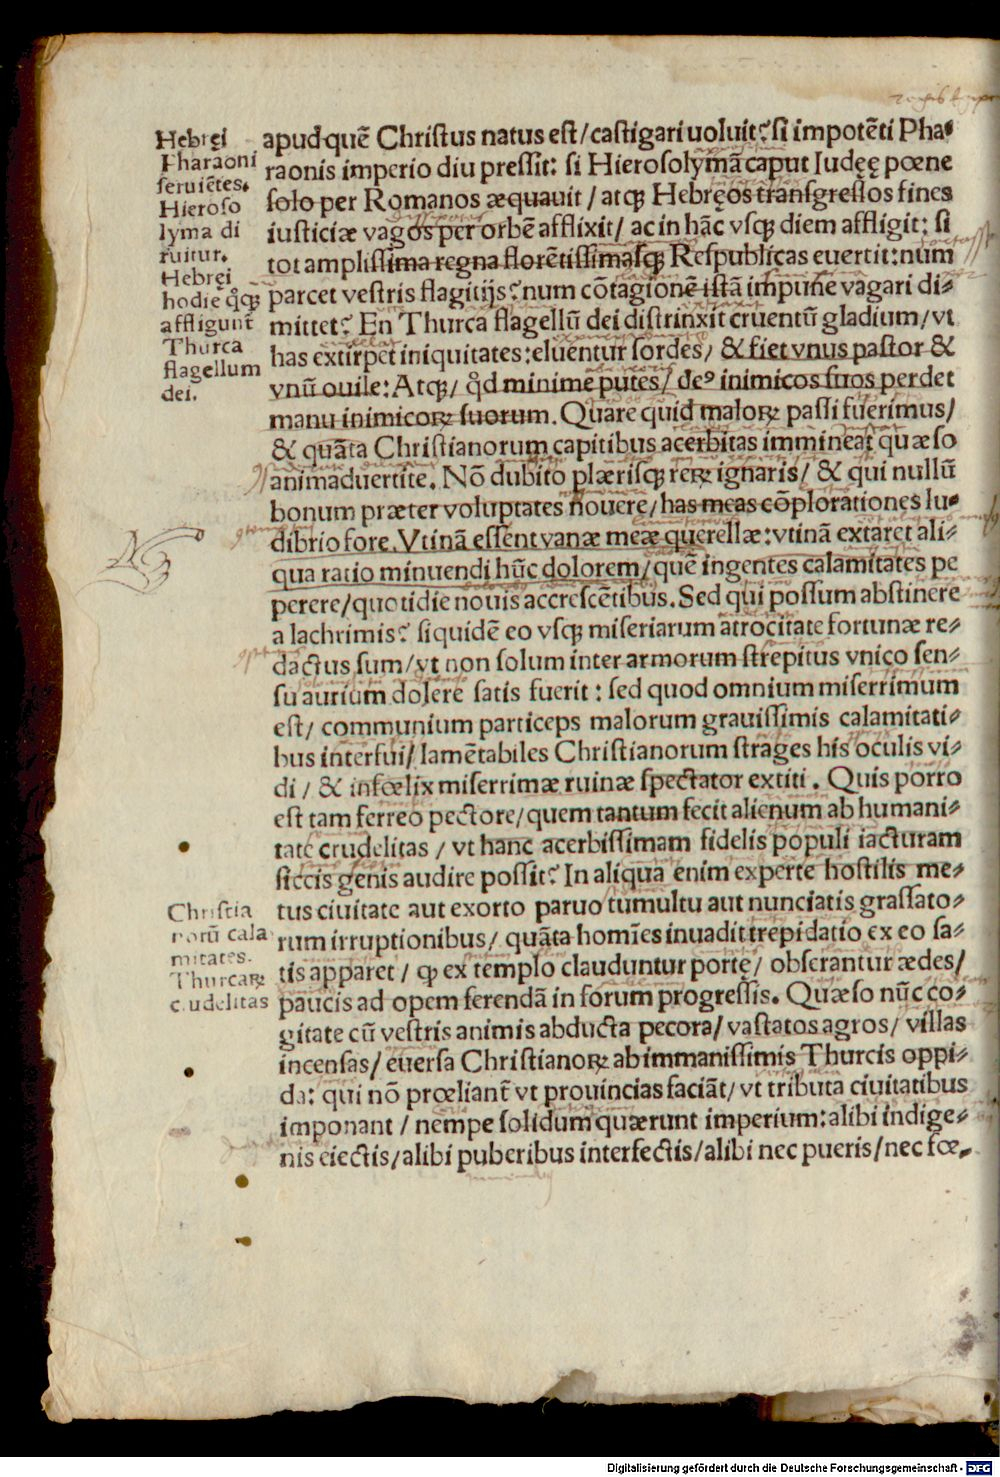 Hebręi
Pharaoni
seruiētes.
Hieroso
lyma di
ruitur.
Hebręi
hodie q̊qꝫ
affligunt̄
Thurca
flagellum
dei.
apud quē Christus natus est/castigari uoluit? si impotēti Pha⸗
raonis imperio diu pressit: si Hierosolymā caput Iudęę pœne
solo per Romanos æquauit / atqꝫ Hebręos transgressos fines
iusticiæ vagos per orbē afflixit/ ac in hāc vsqꝫ diem affligit: si
tot amplissima regna florētissimasqꝫ Respublicas euertit: num
parcet vestris flagitijs? num cōtagionē istā impune vagari di⸗
mittet? En Thurca flagellū dei distrinxit cruentū gladium/vt
has extirpet iniquitates: eluentur sordes/ & fiet vnus pastor &
vnū ouile: Atqꝫ/ q̊d minime putes/ deꝰ inimicos suos perdet
manu inimicorꝝ suorum. Quare quid malorꝝ passi fuerimus/
& quāta Christianorum capitibus acerbitas immineat quæso
animaduertite. Nō dubito plærisqꝫ rerꝝ ignaris/ & qui nullū
bonum præter voluptates nouere/has meas cōplorationes lu⸗
dibrio fore. Vtinā essent vanæ meæ querellæ: vtinā extaret ali⸗
qua ratio minuendi hūc dolorem/quē ingentes calamitates pe
perere/quotidie nouis accrescētibus. Sed qui possum abstinere
a lachrimis? siquidē eo vsqꝫ miseriarum atrocitate fortunæ re⸗
dactus sum/vt non solum inter armorum strepitus vnico sen⸗
su aurium dolere satis fuerit : sed quod omnium miserrimum
est/ communium particeps malorum grauissimis calamitati⸗
bus interfui/ lamētabiles Christianorum strages his oculis vi⸗
di / & infœlix miserrimæ ruinæ spectator extiti . Quis porro
est tam ferreo pectore/quem tantum fecit alienum ab humani⸗
tate crudelitas / vt hanc acerbissimam fidelis populi iacturam
siccis genis audire possit? In aliqua enim experte hostilis me⸗
tus ciuitate aut exorto paruo tumultu aut nunciatis grassato⸗
rum irruptionibus/ quāta homīes inuadit trepidatio ex eo sa⸗
tis apparet / ꝙ ex templo clauduntur portę/ obserantur ædes/
paucis ad opem ferendā in forum progressis. Quæso nūc co⸗
gitate cū vestris animis abducta pecora/ vastatos agros/ villas
incensas/ euersa Christianorꝝ ab immanissimis Thurcis oppi⸗
da: qui nō prœliant̄ vt prouincias faciāt/ vt tributa ciuitatibus
imponant / nempe solidum quærunt imperium: alibi indige⸗
nis eiectis/alibi puberibus interfectis/alibi nec pueris/nec fœ⸗
Christia
norū cala
mitates.
Thurcarꝝ
crudelitas
Digitalisierung gefördert durch die Deutsche Forschungsgemeinschaft - DFG